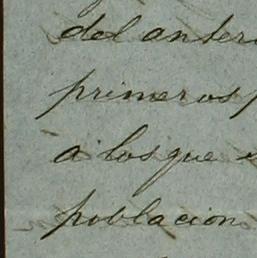 del anteri
primeros p
a los que e
poblacion